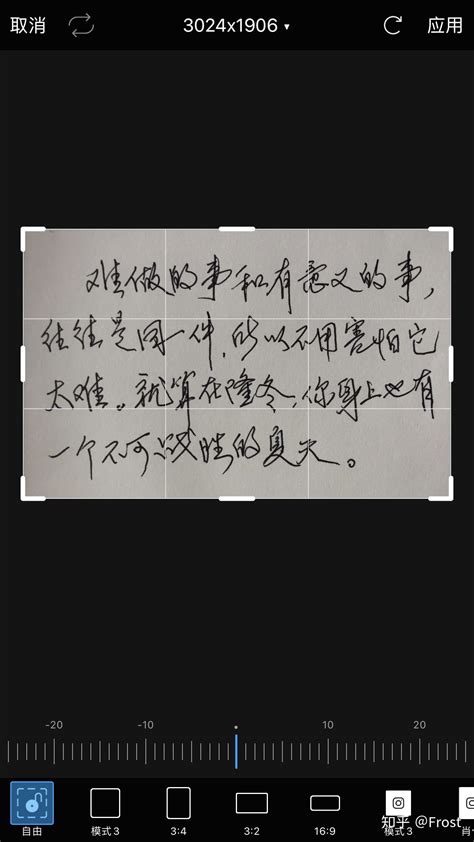 取消 3024x1906 ▾ 应用
难做的事和有意义的事，
往往是同一件，所以不用害怕它
太难。就算在隆冬，你身上也有
一个不可战胜的夏天。
-20 -10 10 20
自由 模式 3 3:4 3:2 16:9 模式 3 肖
知乎 @Frost